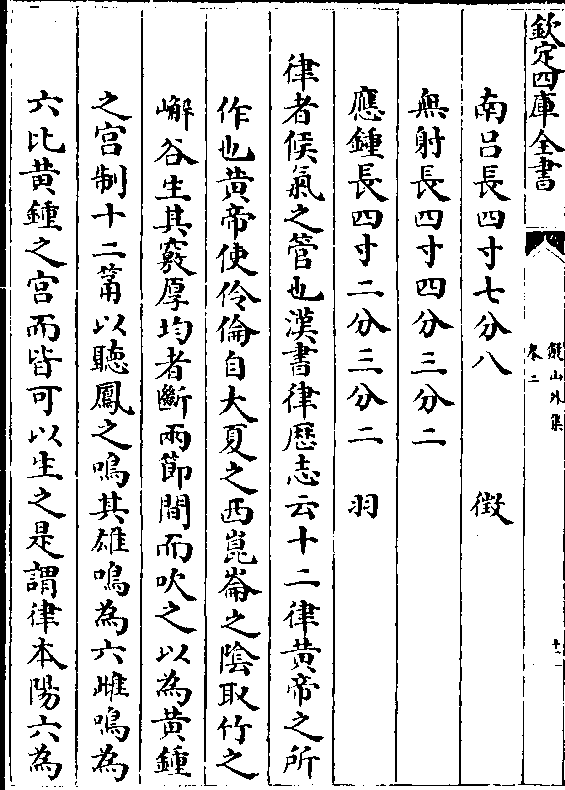 欽定四庫全書
儼山外集
卷二
南呂長四寸七分八　徵
無射長四寸四分三分二
應鍾長四寸二分三分二　羽
律者候氣之管也漢書律歷志云十二律黃帝之所
作也黃帝使伶倫自大夏之西崑崙之陰取竹之
嶰谷生其竅厚均者斷兩節間而吹之以為黃鍾
之宫制十二筩以聽鳳之鳴其雄鳴為六雌鳴為
六比黃鍾之宫而皆可以生之是謂律本陽六為